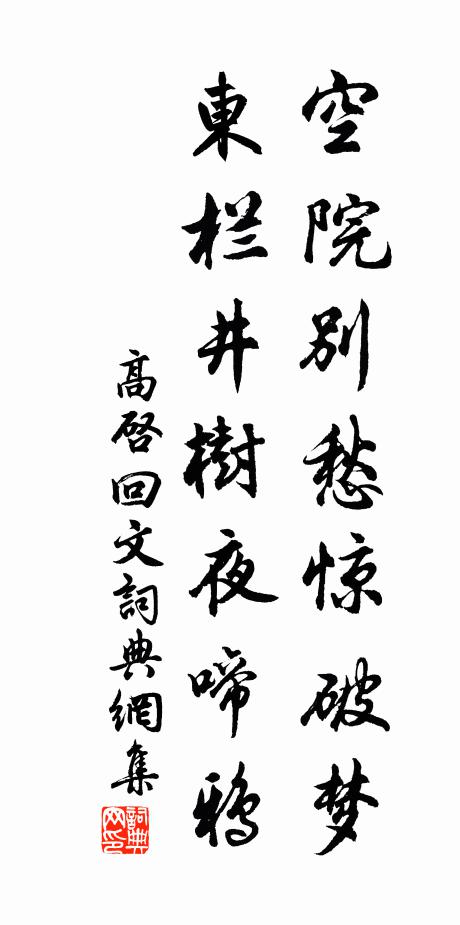 空院別愁惊破梦
東栏井樹夜啼鴉
高啓回文詞典網集
詞典网印